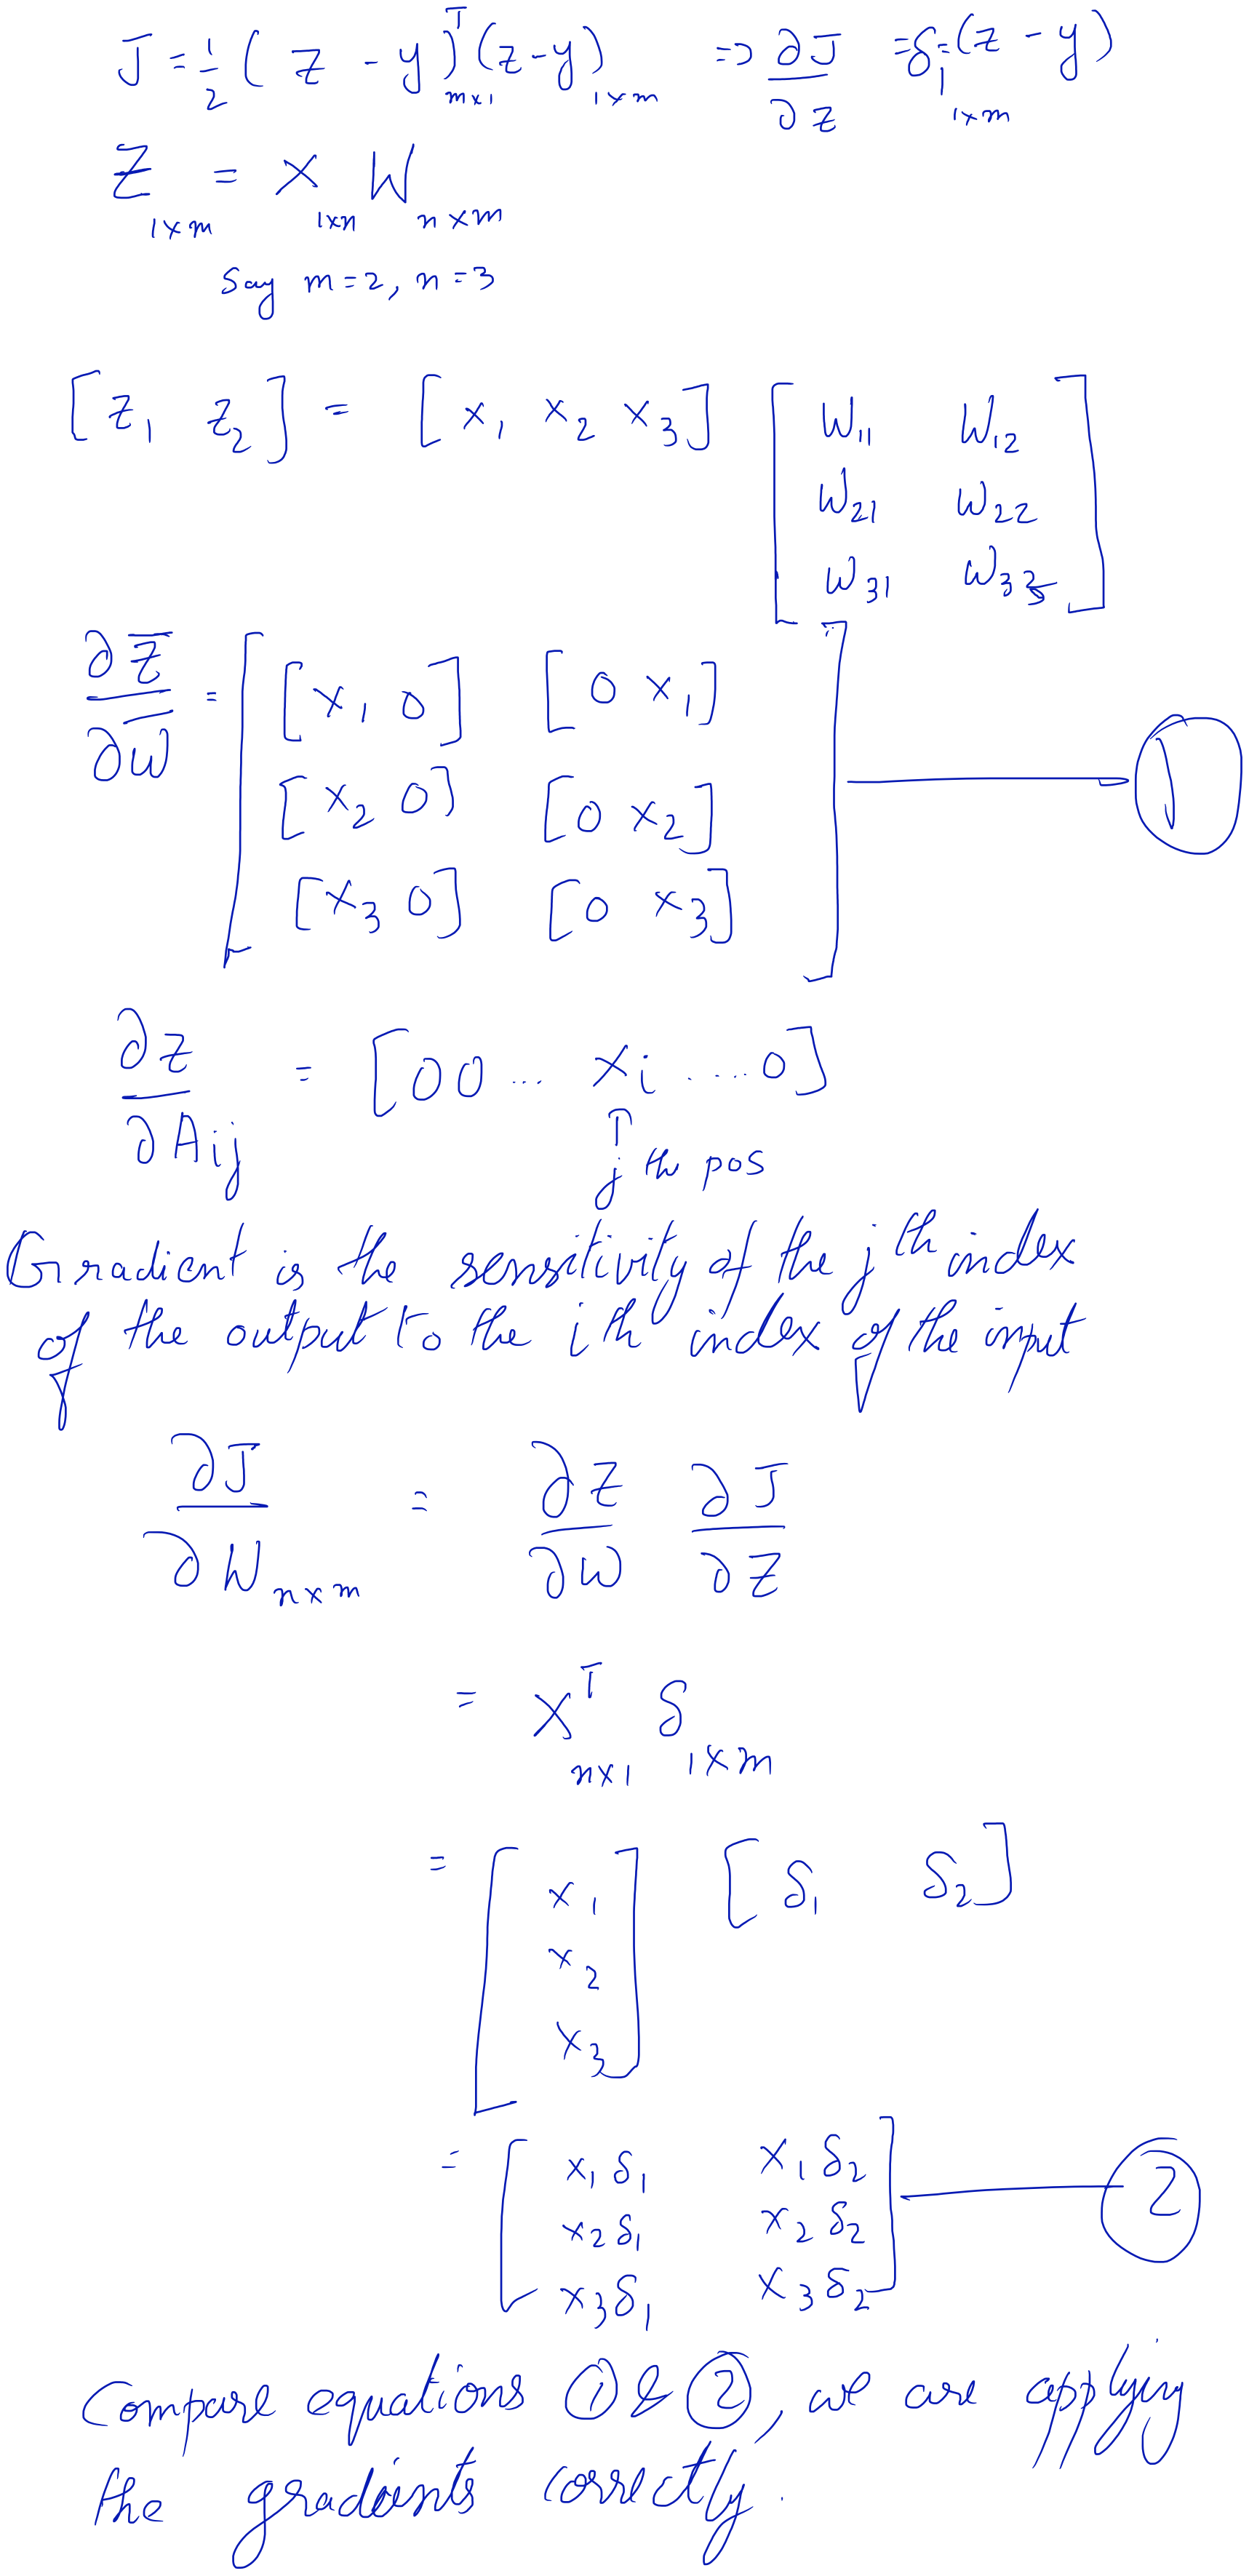 J = 1/2 ( z - y )ᵀ m×1 (z-y) 1×m => ∂J/∂z = δ = (z - y) 1×m
Z 1×m = X 1×n W n×m
Say m=2, n=3
[z₁ z₂] = [x₁ x₂ x₃] [W₁₁ W₁₂
W₂₁ W₂₂
W₃₁ W₃₂]
∂Z̅/∂W̅ = [[x₁ 0] [0 x₁]
[x₂ 0] [0 x₂]
[x₃ 0] [0 x₃]] ①
∂z/∂Aij = [0 0 ... xi ....0]
↑
j th pos
Gradient is the sensitivity of the jth index
of the output to the ith index of the input
∂J/∂W n×m = ∂Z/∂W ∂J/∂Z
= Xᵀ n×1 δ 1×m
= [x₁
x₂
x₃] [δ₁ δ₂]
= [x₁δ₁ x₁δ₂
x₂δ₁ x₂δ₂
x₃δ₁ x₃δ₂] ②
Compare equations ① & ②, we are applying
the gradients correctly.